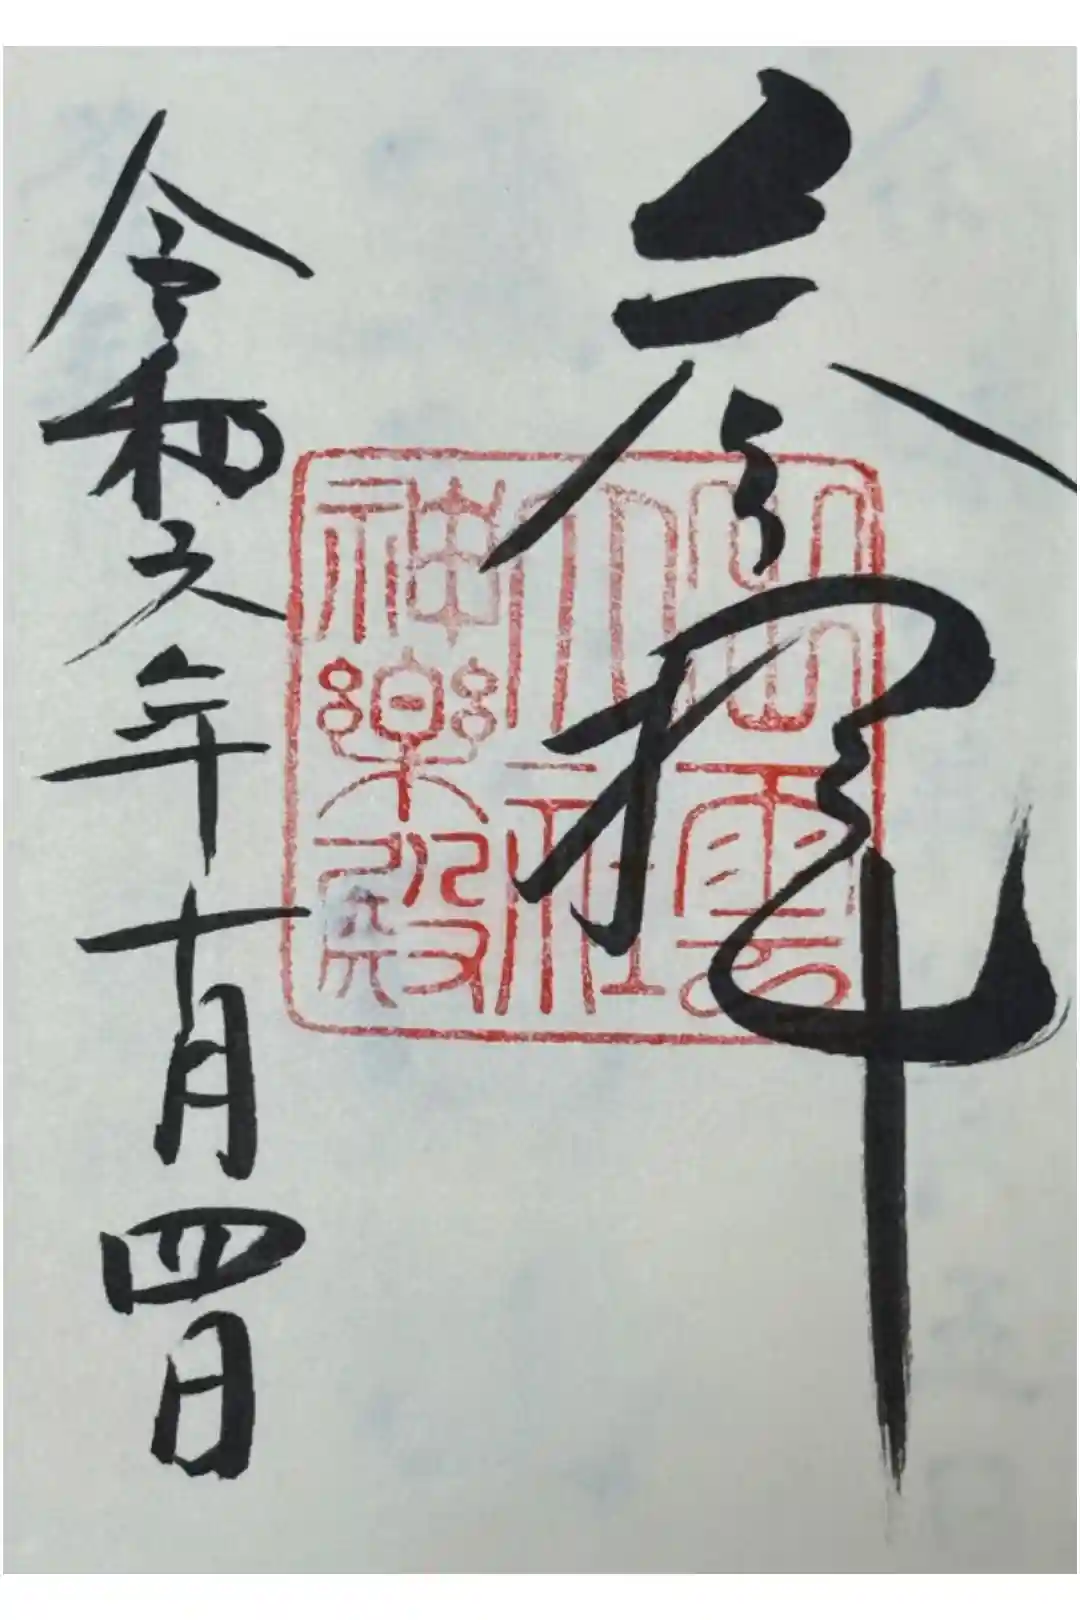 参拝
出雲大社神楽殿
令和六年十月四日